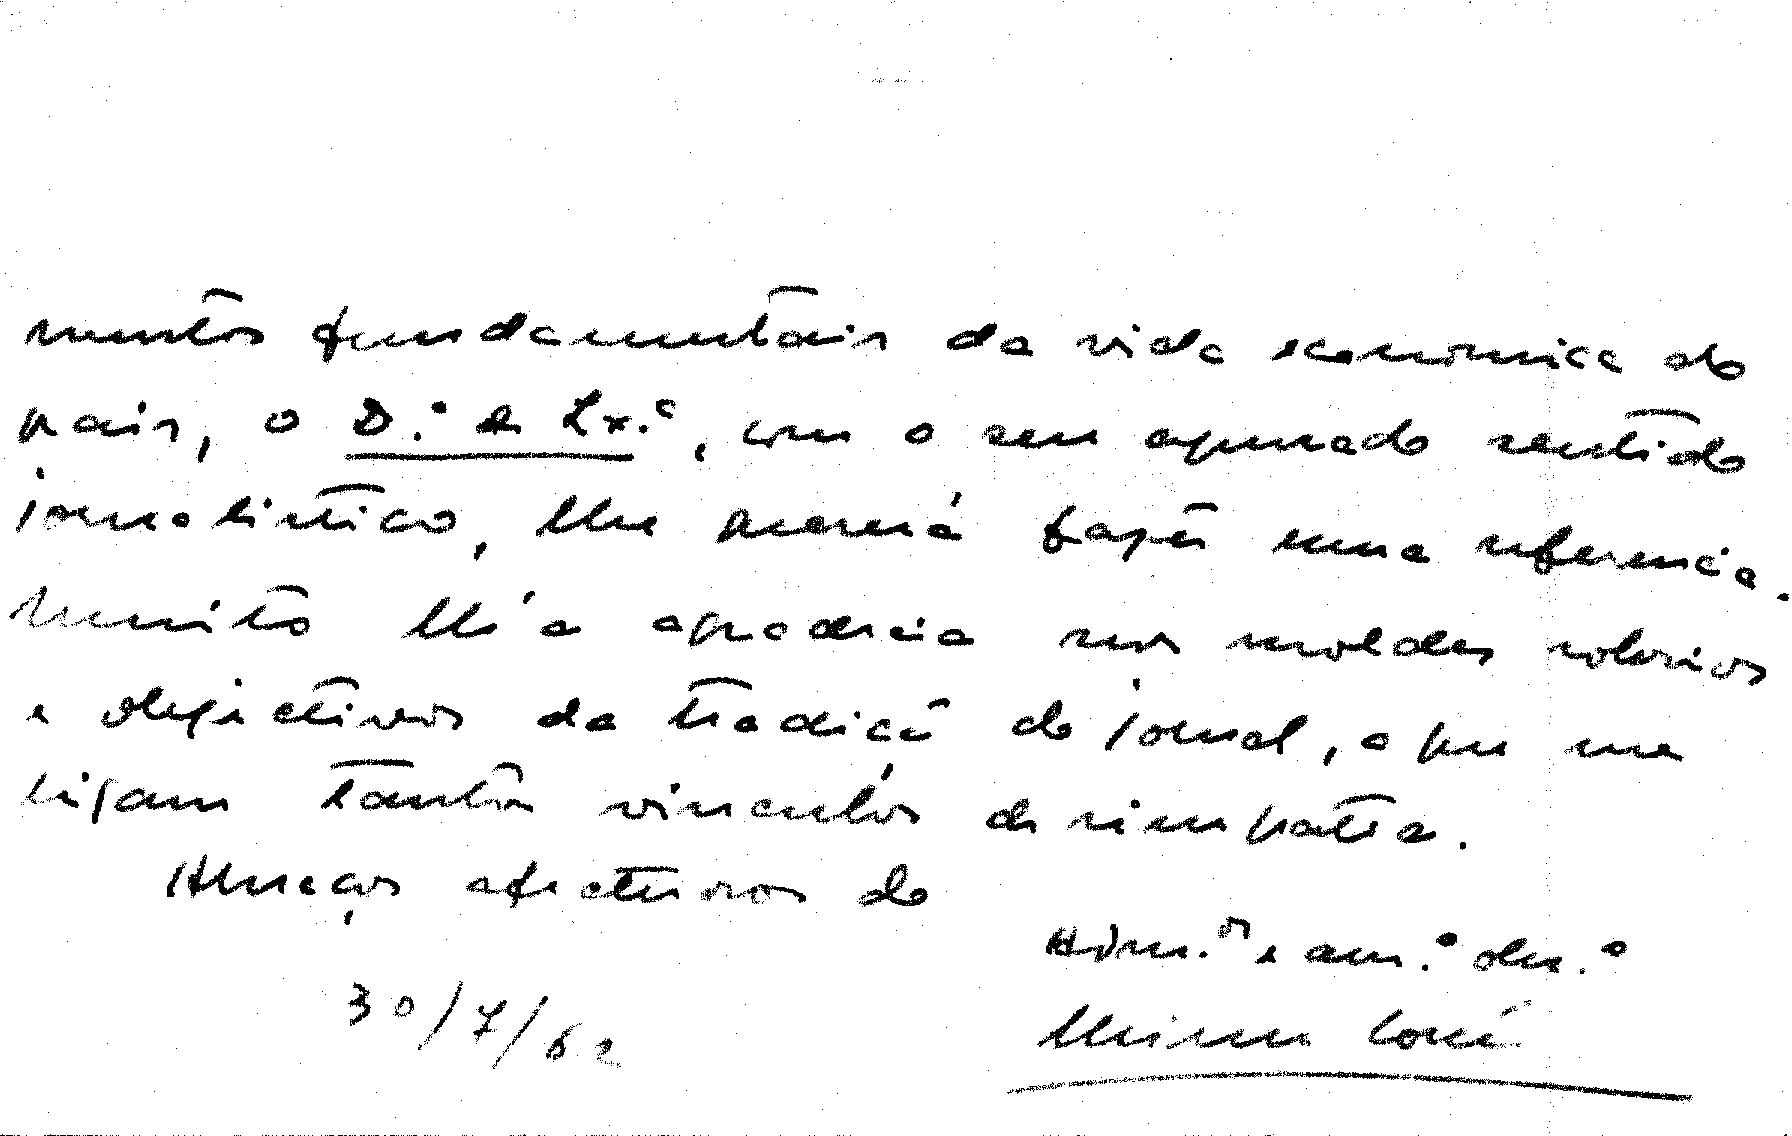 mentos fundamentais da vida económica do
país, o D.º de Lx.ª, com o seu apurado sentido
jornalístico, lhe poderá fazer uma referência.
Muito lh'a agradecia nos moldes sóbrios
e objectivos da tradição do jornal, a que me
ligam tantos vínculos de simpatia.
Abraços afectuosos do
Adm.ºr e am.º obg.º
30/7/62